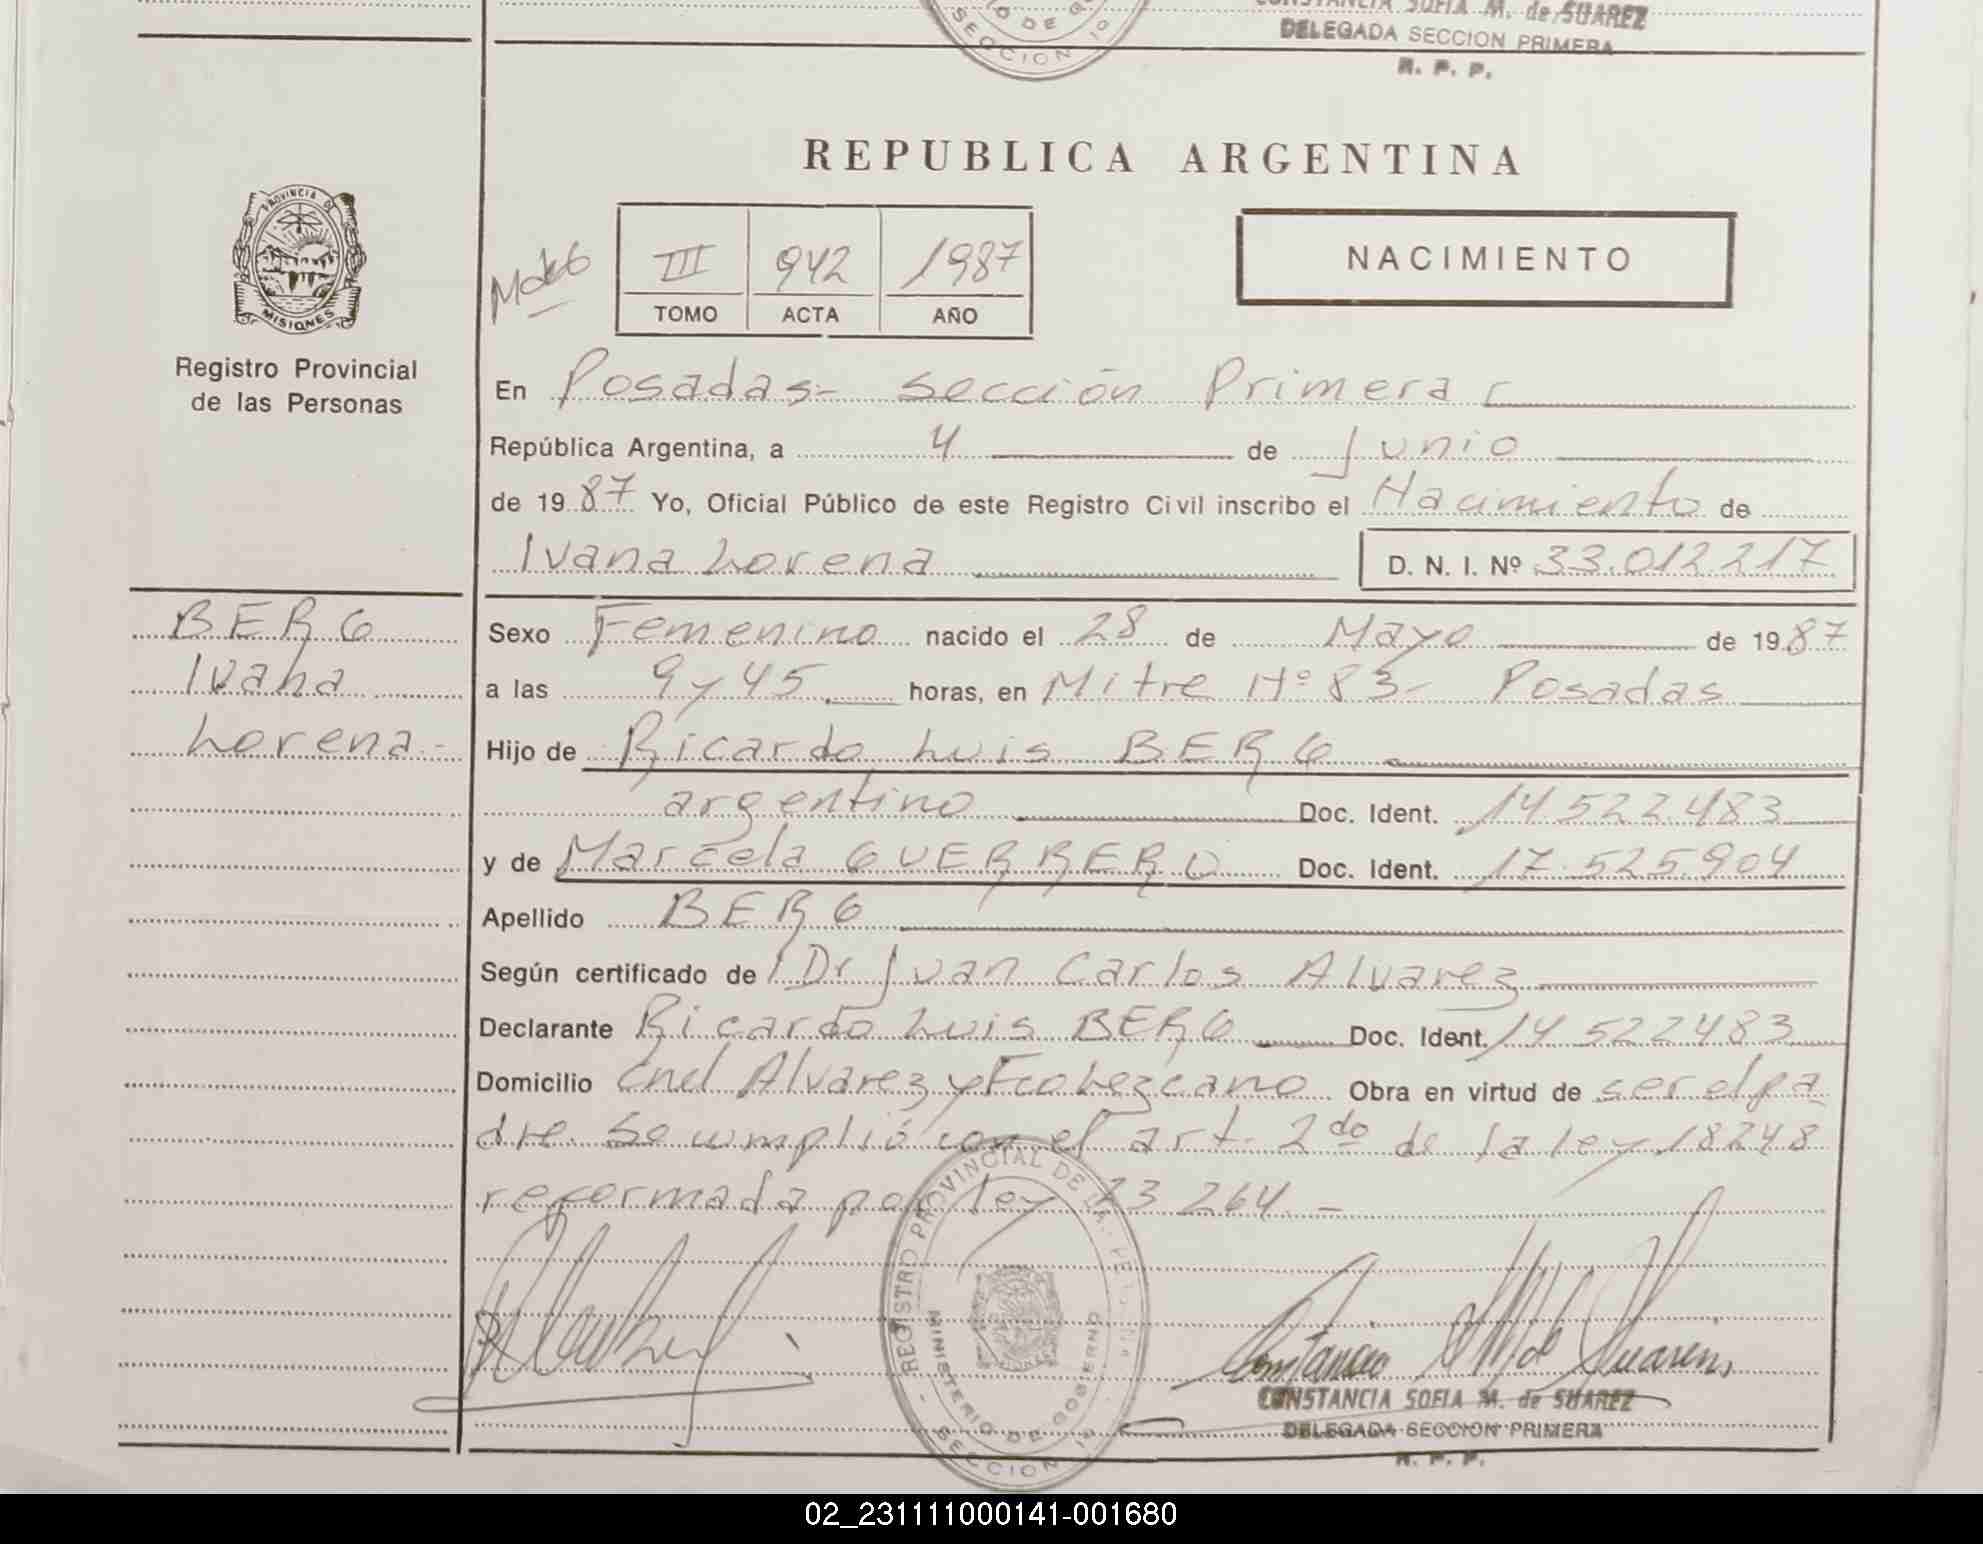 CONSTANCIA SOFIA M. de SUAREZ
DELEGADA SECCION PRIMERA
R. P. P.
SECCION 1º
REPUBLICA ARGENTINA
PROVINCIA DE
MISIONES
Registro Provincial
de las Personas
III 942 1987
TOMO ACTA AÑO
NACIMIENTO
En Posadas- Sección Primera
República Argentina, a 4 de Junio
de 1987 Yo, Oficial Público de este Registro Civil inscribo el Nacimiento de
Ivana Lorena D. N. I. Nº 33.012.217
BERG
Ivana
Lorena.-
Sexo Femenino nacido el 28 de Mayo de 1987
a las 9 y 45 horas, en Mitre Nº 83- Posadas
Hijo de Ricardo Luis BERG
argentino Doc. Ident. 14.522.483
y de Marcela GUERRERO Doc. Ident. 17.525.904
Apellido BERG
Según certificado de Dr Juan Carlos Alvarez
Declarante Ricardo Luis BERG Doc. Ident. 14.522.483
Domicilio Cnel Alvarez y Fco Lezcano Obra en virtud de ser el pa
dre. Se cumplió con el art. 2do de la ley 18248
reformada por ley 23.264.-
REGISTRO PROVINCIAL DE LAS PERSONAS
MINISTERIO DE GOBIERNO
SECCION 1º
Constancia S M de Suarez
CONSTANCIA SOFIA M. de SUAREZ
DELEGADA SECCION PRIMERA
R. P. P.
02_231111000141-001680